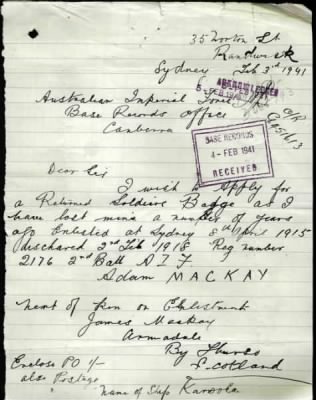 35 Norton St
Randwick
Sydney Feb 3rd 1941
ACKNOWLEDGED
5 - FEB 1941
Australian Imperial Force
Base Records Office
Canberra
BASE RECORDS
4 - FEB 1941
RECEIVED
Dear Sir
I wish to Apply for
a Returned Soldiers Badge as I
have lost mine a number of years
ago Enlisted at Sydney 8th April 1915
discharged 2nd Feb 1918 Reg number
2176 2nd Batt A I F
Adam MACKAY
next of kin on Enlistment
James Mackay
Armadale
By Thurso
Scotland
Enclose PO 1/-
also Postage
Name of Ship Karoola